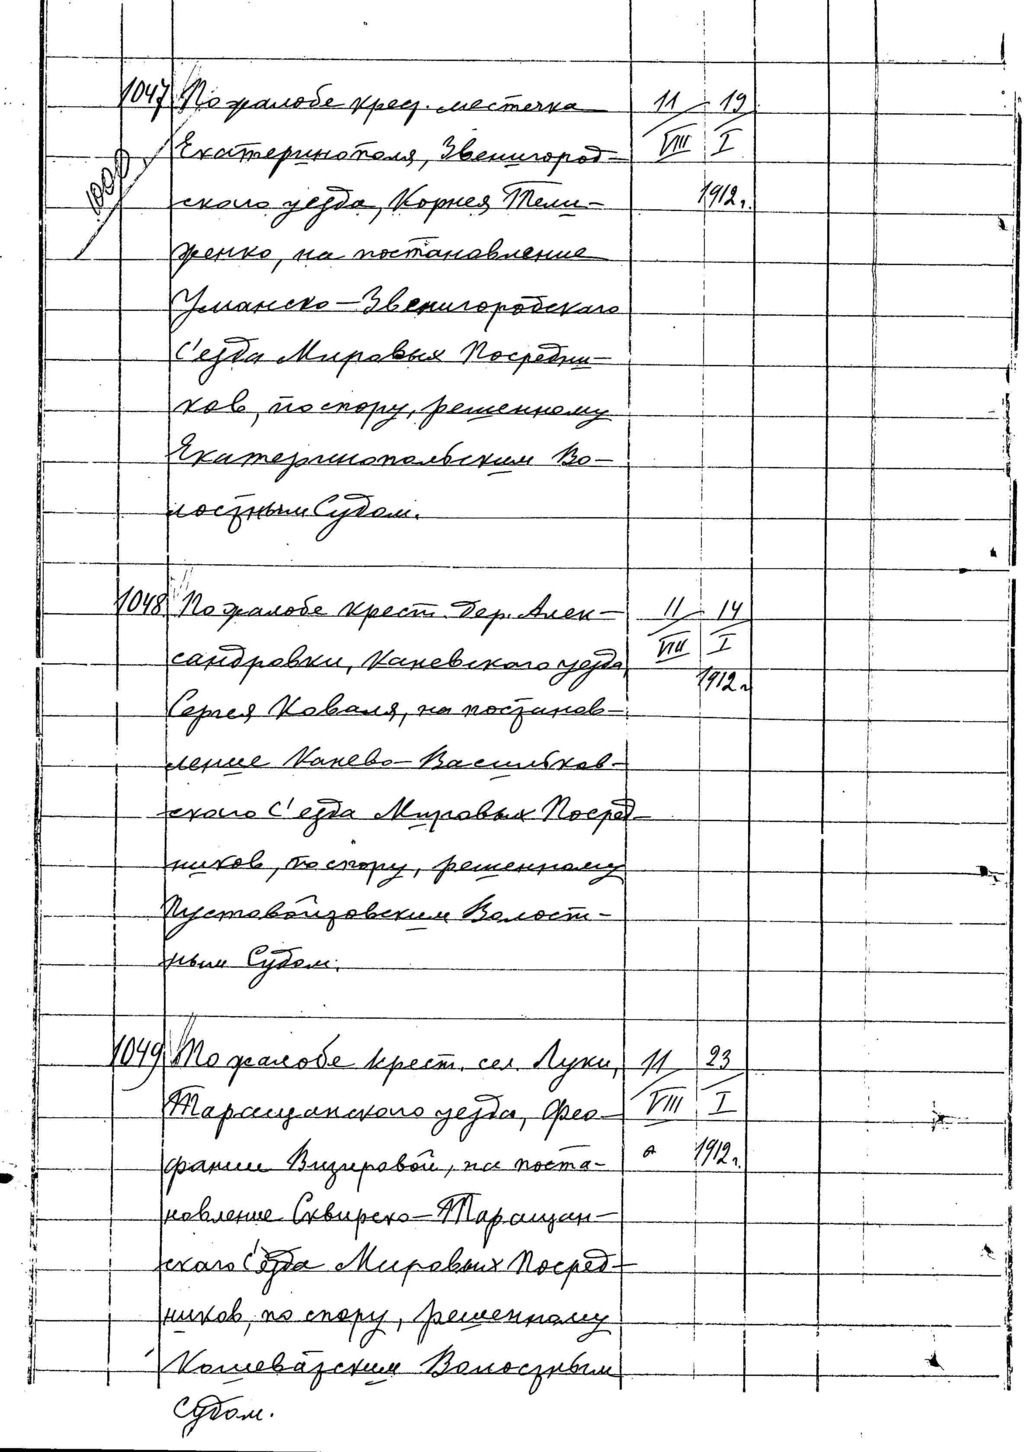 1047 По жалобе крес. местечка 11 — 19
Екатеринополя, Звенигород- VIII I
1000
ского уезда, Корнея Тели- 1912 г.
женко, на постановление
Уманско-Звенигородскаго
С'езда Мировых Посредни-
ков, по спору, решенному
Екатеринопольским Во-
лостным Судом.
1048 По жалобе крест. дер. Алек- 11 — 14
сандровки, Каневского уезда, VIII I
Сергея Коваля, на постанов- 1912 г.
ление Канево-Васильков-
ского С'езда Мировых Посред-
ников, по спору, решенному
Пустовойтовским Волост-
ным Судом.
1049 По жалобе крест. сел. Луки, 11 23
Таращанского уезда, Фео- VIII I
фании Визировой, на поста- 1912 г.
новление Сквирско-Таращан-
скаго С'езда Мировых Посред-
ников, по спору, решенному
Кошеватским Волостным
Судом.